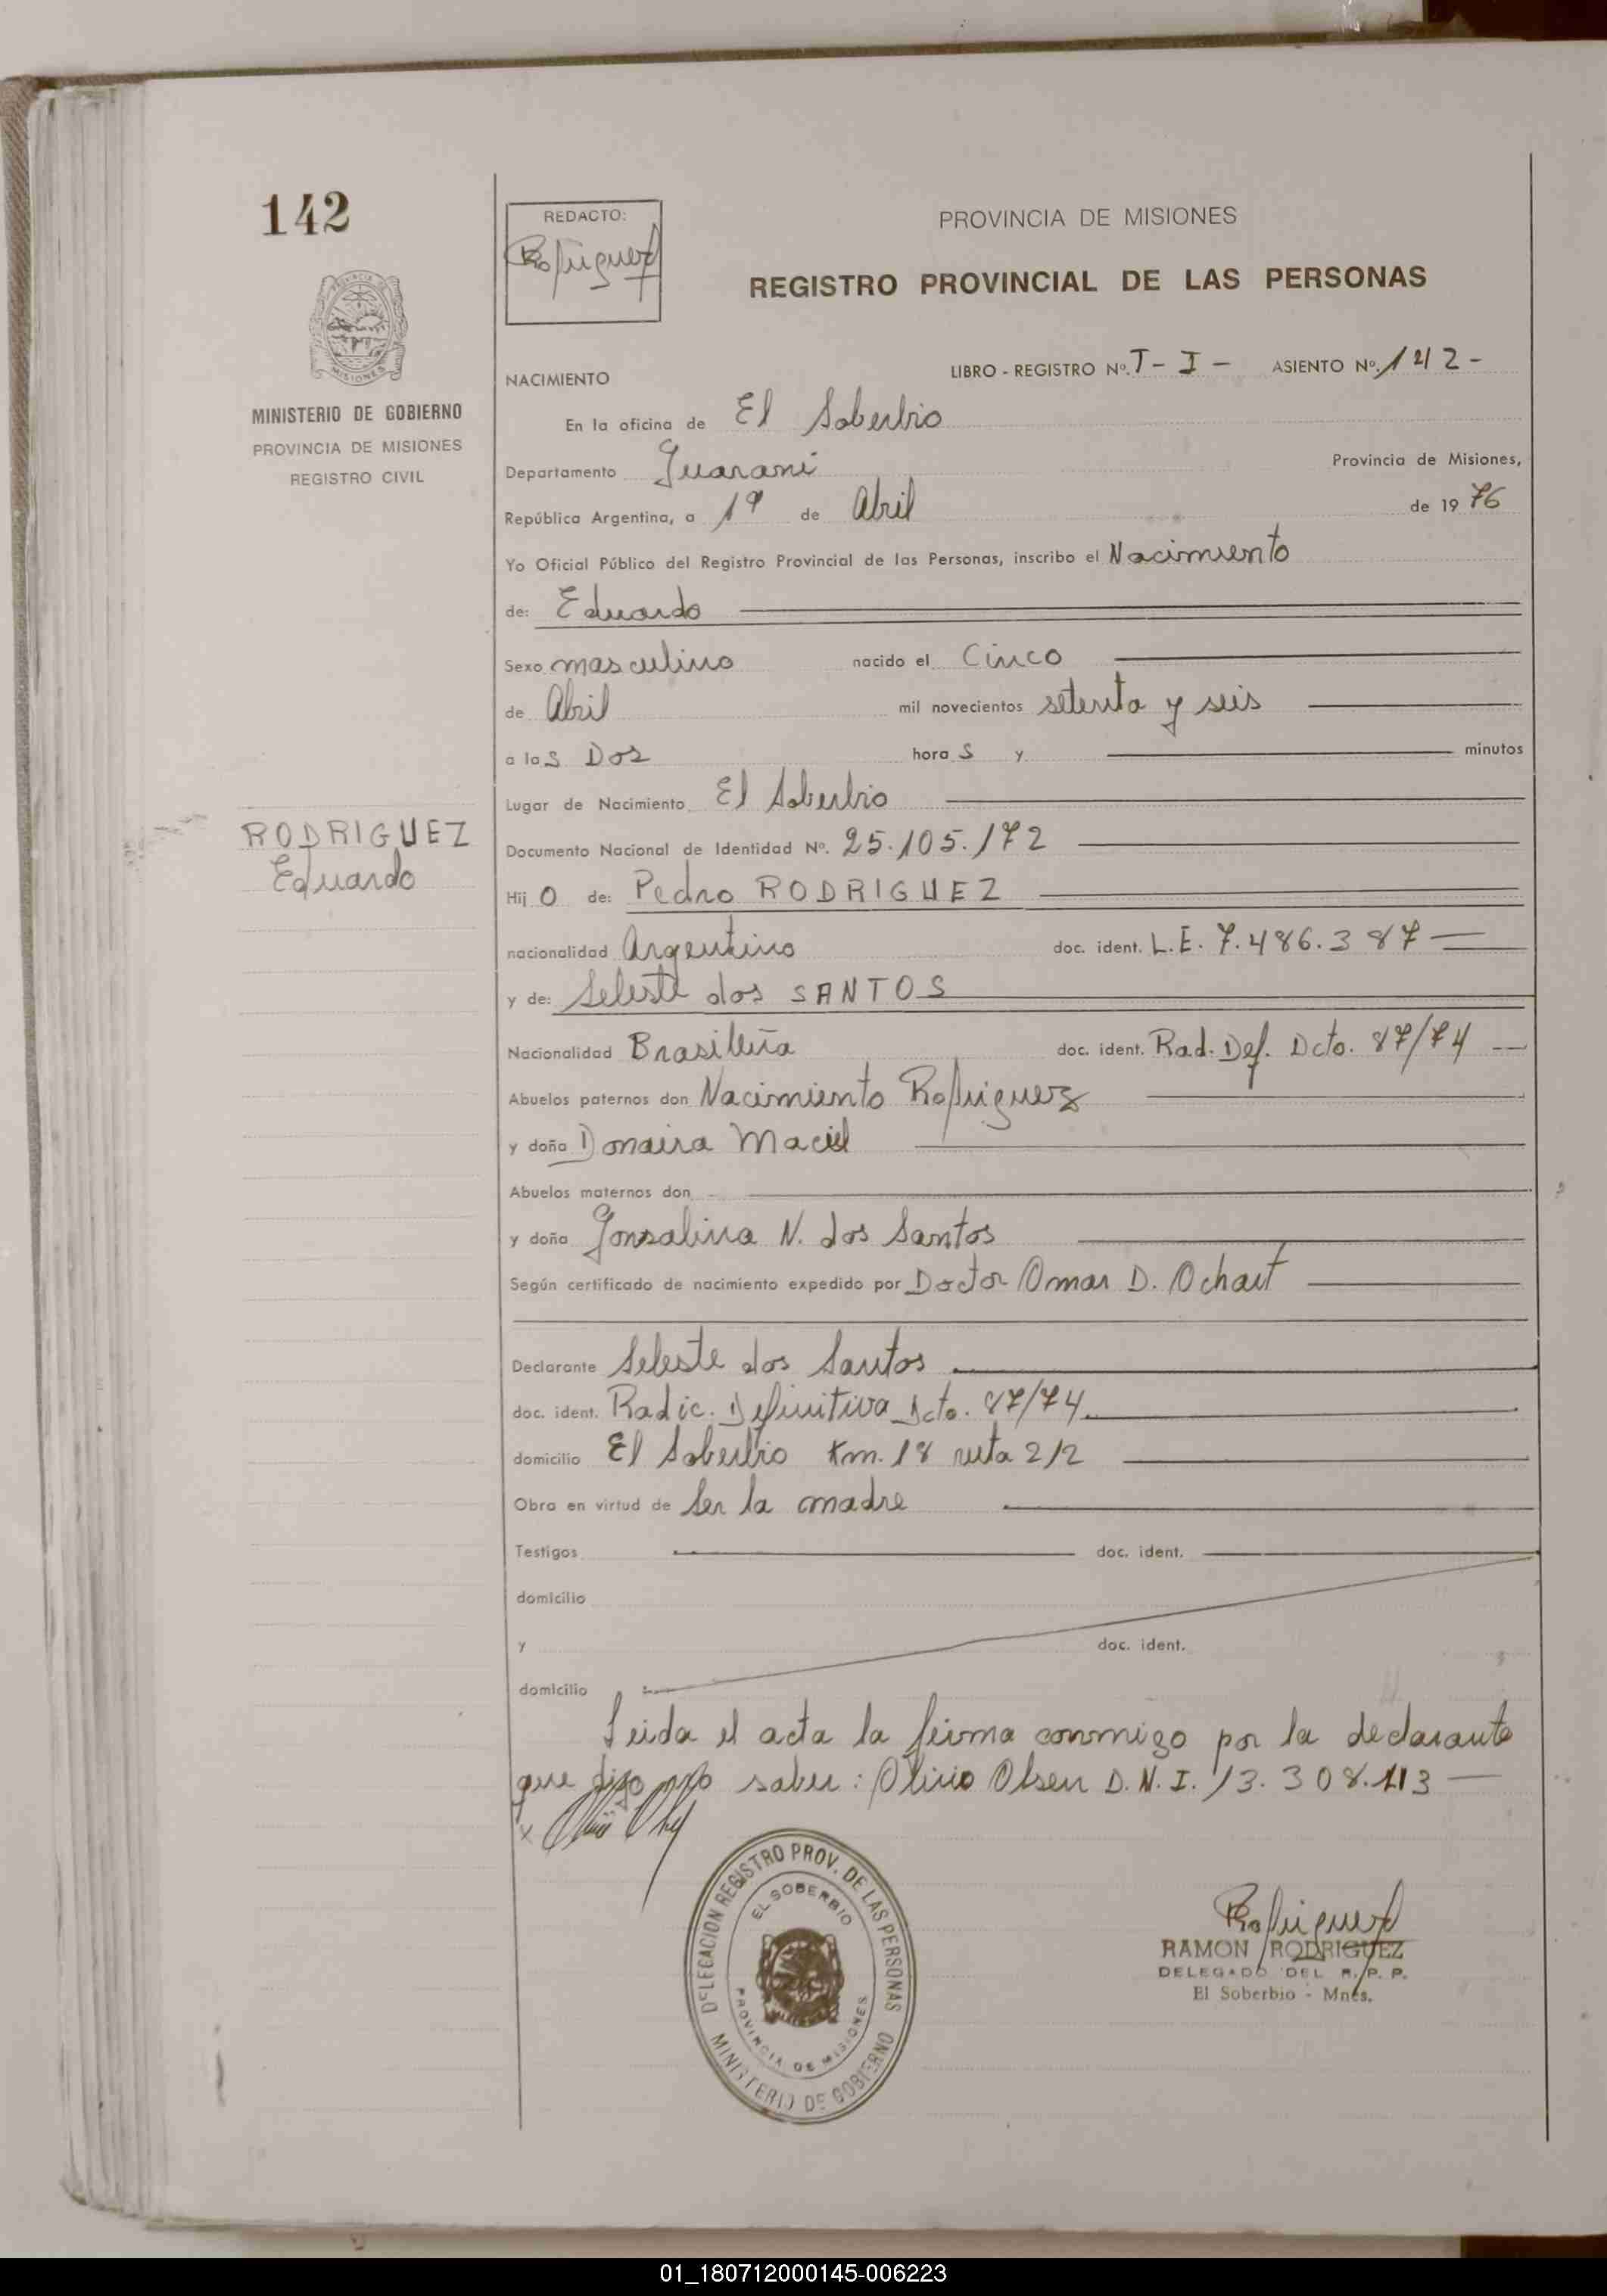 142
REDACTO:
Rodriguez
PROVINCIA DE MISIONES
REGISTRO PROVINCIAL DE LAS PERSONAS
MINISTERIO DE GOBIERNO
PROVINCIA DE MISIONES
REGISTRO CIVIL
NACIMIENTO
LIBRO - REGISTRO Nº. T - I - ASIENTO Nº. 142 -
En la oficina de El Soberbio
Departamento Guarani Provincia de Misiones,
República Argentina, a 1º de Abril de 1976
Yo Oficial Público del Registro Provincial de las Personas, inscribo el Nacimiento
de: Eduardo
Sexo masculino nacido el Cinco
de Abril mil novecientos setenta y seis
a las Dos horas y minutos
Lugar de Nacimiento El Soberbio
RODRIGUEZ
Eduardo
Documento Nacional de Identidad Nº. 25.105.172
Hijo de: Pedro RODRIGUEZ
nacionalidad Argentino doc. ident. L.E. 7.486.387
y de: Seleste dos SANTOS
Nacionalidad Brasilleña doc. ident. Rad. Def. Dcto. 87/74
Abuelos paternos don Nacimiento Rodriguez
y doña Donaira Maciel
Abuelos maternos don -
y doña Gonsalina N. dos Santos
Según certificado de nacimiento expedido por Doctor Omar D. Ochart
Declarante Seleste dos Santos
doc. ident. Radic. Definitiva Dcto. 87/74
domicilio El Soberbio Km. 18 ruta 212
Obra en virtud de Ser la madre
Testigos doc. ident.
domicilio
y doc. ident.
domicilio
Leida el acta la firma conmigo por la declarante
que dijo no saber: Olivio Olsen D.N.I. 13.308.113
x
DELEGACION REGISTRO PROV. DE LAS PERSONAS
EL SOBERBIO
PROVINCIA DE MISIONES
MINISTERIO DE GOBIERNO
Rodriguez
RAMON RODRIGUEZ
DELEGADO DEL R. P. P.
El Soberbio - Mnes.
01_180712000145-006223